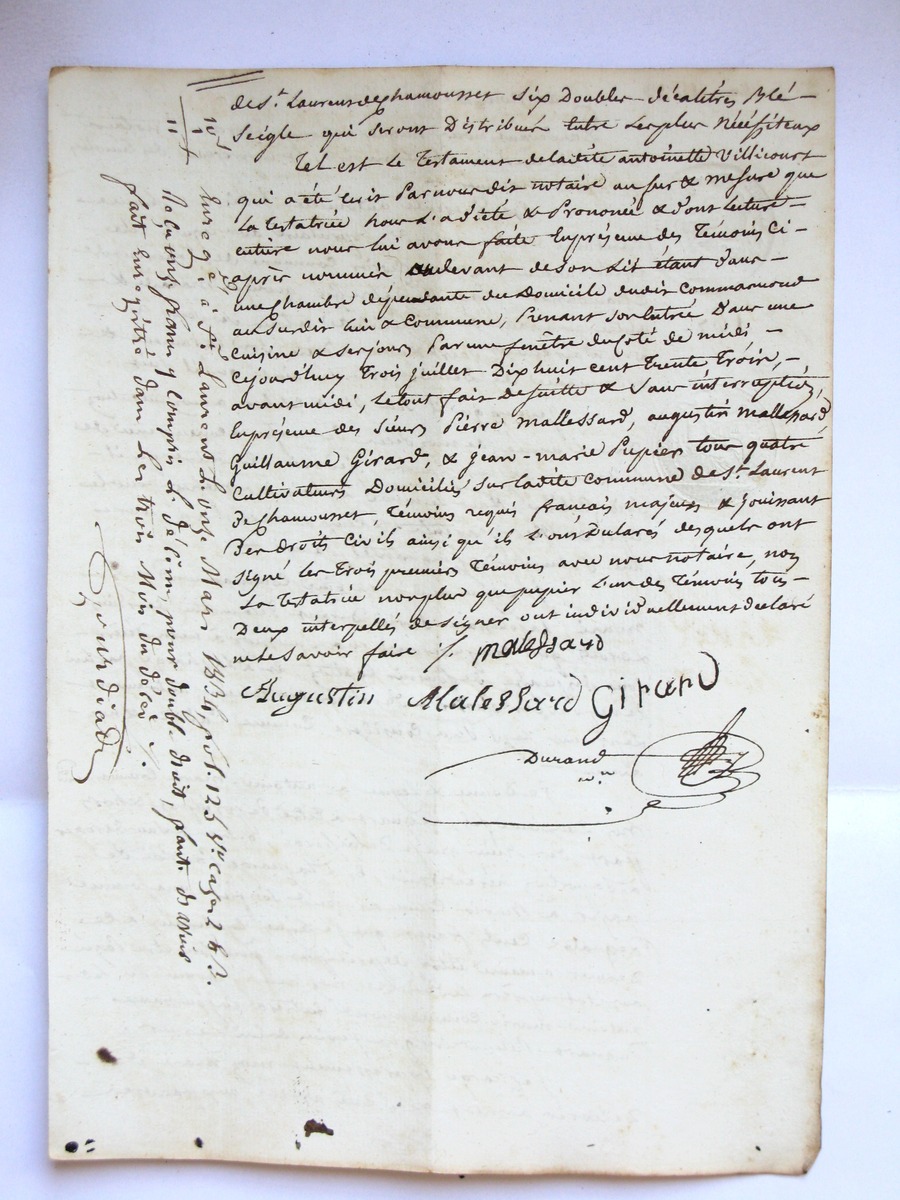 de St. Laurent de Chamousset six Doubles décalitres Blé-
Seigle qui seront Distribués entre les plus Nécéssiteux
Tel est le Testament de ladite antoinette Villicourt
qui a été écrit Par nous dit notaire au fur & mesure que
La Testatrice nous l'a dicté & Prononcé & dont lecture
entière nous lui avons faite En présence des Témoins Ci-
après nommés audevant de son Lit étant dans-
une chambre dépendante du Domicile dudit Commarmond
au susdit lieu & Commune, Prenant son Entrée Dans une
cuisine & ses jours Par une fenêtre du Coté de midi-
Cejourd'huy Trois juillet Dix huit cent trente Trois,-
avant midi, le tout fait de suitte & sans interruption,
En présence des sieurs Pierre Mallessard, augustin Mallessard
Guillaume Girard, & jean-marie Pupier tous quatre
Cultivateurs Domiciliés sur ladite commune de St. Laurent
De Chamousset, Témoins requis français majeurs & Jouissant
Des droits Civils ainsi qu'ils l'ont Déclaré desquels ont
signé les Trois premiers Témoins avec nous notaire, non
La Testatrice non plus que pupier l'un des Témoins tous-
Deux interpellés de signer ont individuellement déclaré
ne le Savoir faire /. malessard
Augustin Malessard Girard
Durand
nre
10
1
11
Enregé à St. Laurent L'onze Mars 1834, fol. 125 Vo. cases 2 & 3.
Reçu onze francs y compris le décime, pour double droit, faute d'avoir
fait enregistrer dans les trois Mois du décès /.